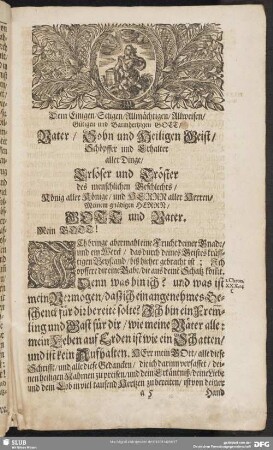 Dem Einigen Seligen/ Allmächtigen/ Allweisen/
Gütigen und Barmhertzigen GOTT/
Vater/ Sohn und Heiligen Geist/
Schöpffer und Erhalter
aller Dinge/
Erlöser und Tröster
des menschlichen Geschlechts/
König aller Könige/ und HERRN aller Herren/
Meinem gnädigen HERRN/
GOTT und Vater.
Mein GOTT!
Ich bringe abermahl eine Frucht deiner Gnade/
und ein Werck/ das durch deines Geistes kräff-
tigen Beystand/ biß hieher gebracht ist: Ich
opffere dir eine Gabe/ die aus deine Schatz kömt.
Denn was bin ich? und was ist
mein Vermögen/ daß ich ein angenehmes Ge-
schenck für dir bereite solte? Ich bin ein Fremb-
ling und Gast für dir/ wie meine Väter alle:
mein Leben auf Erden ist wie ein Schatten/
und ist kein Aufhalten. HErr mein GOtt/ alle diese
Schrifft/ und alle diese Gedancken/ die ich darinn verfasset/ dei-
nen heiligen Nahmen zu preisen/ und dein Erkäntniß/ deine Liebe
und dein Lob in viel tausend Hertzen zu bereiten/ ist von deiner
Hand